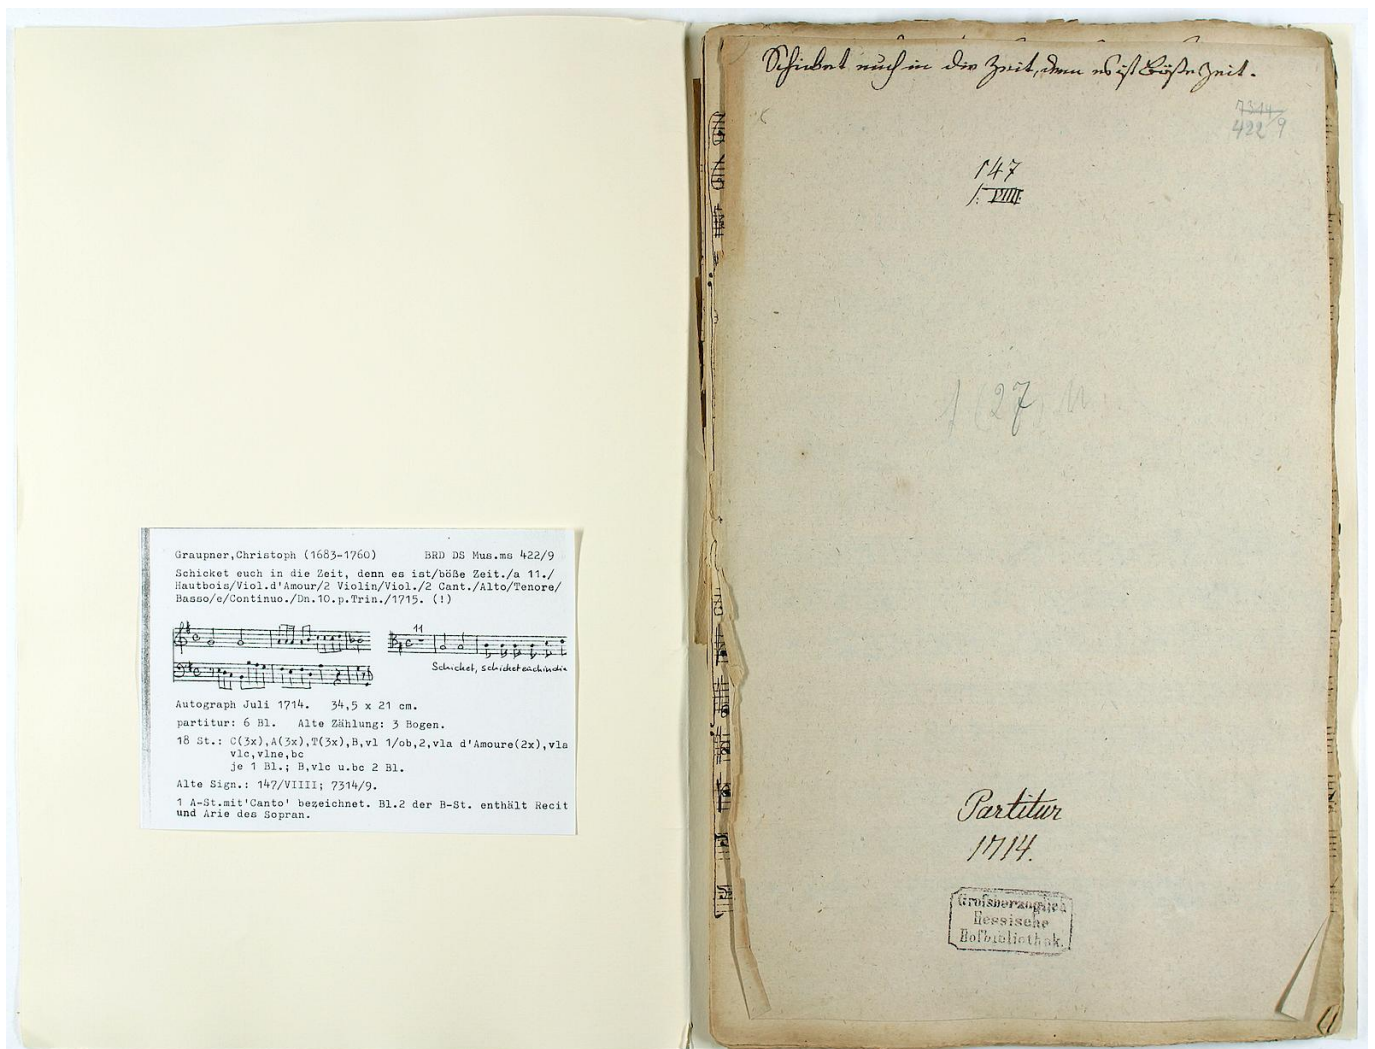 Graupner,Christoph (1683-1760) BRD DS Mus.ms 422/9
Schicket euch in die Zeit, denn es ist/böße Zeit./a 11./
Hautbois/Viol.d'Amour/2 Violin/Viol./2 Cant./Alto/Tenore/
Basso/e/Continuo./Dn.10.p.Trin./1715. (!)
11
Schicket, schicket euch in die
Autograph Juli 1714. 34,5 x 21 cm.
partitur: 6 Bl. Alte Zählung: 3 Bogen.
18 St.: C(3x),A(3x),T(3x),B,vl 1/ob,2,vla d'Amoure(2x),vla
vlc,vlne,bc
je 1 Bl.; B,vlc u.bc 2 Bl.
Alte Sign.: 147/VIIII; 7314/9.
1 A-St.mit'Canto' bezeichnet. Bl.2 der B-St. enthält Recit
und Arie des Sopran.
Schicket euch in die Zeit, denn es ist böße Zeit.
7314
422/9
147
VIIII
(27)
Partitur
1714.
Großherzoglich
Hessische
Hofbibliothek.